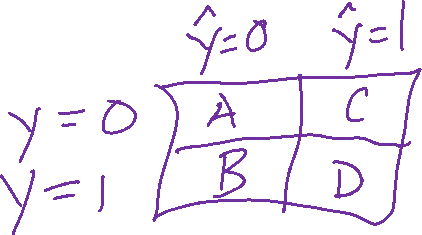 ŷ=0 ŷ=1
y=0 A C
y=1 B D